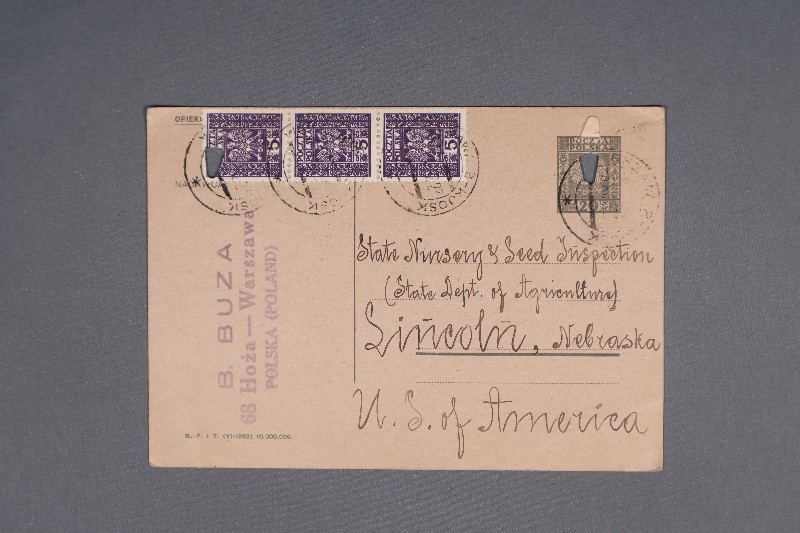 OPIEK
POCZTA
POLSKA
5
POCZTA
POLSKA
5
POCZTA
POLSKA
5
POCZTA
POLSKA
20
NADAWCA
B. BUZA
68 Hoża — Warszawa
POLSKA (POLAND)
State Nursery & Seed Inspection
(State Dept. of Agriculture)
Lincoln, Nebraska
U. S. of America
M. P. i T. (VI-1932) 10.000.000.